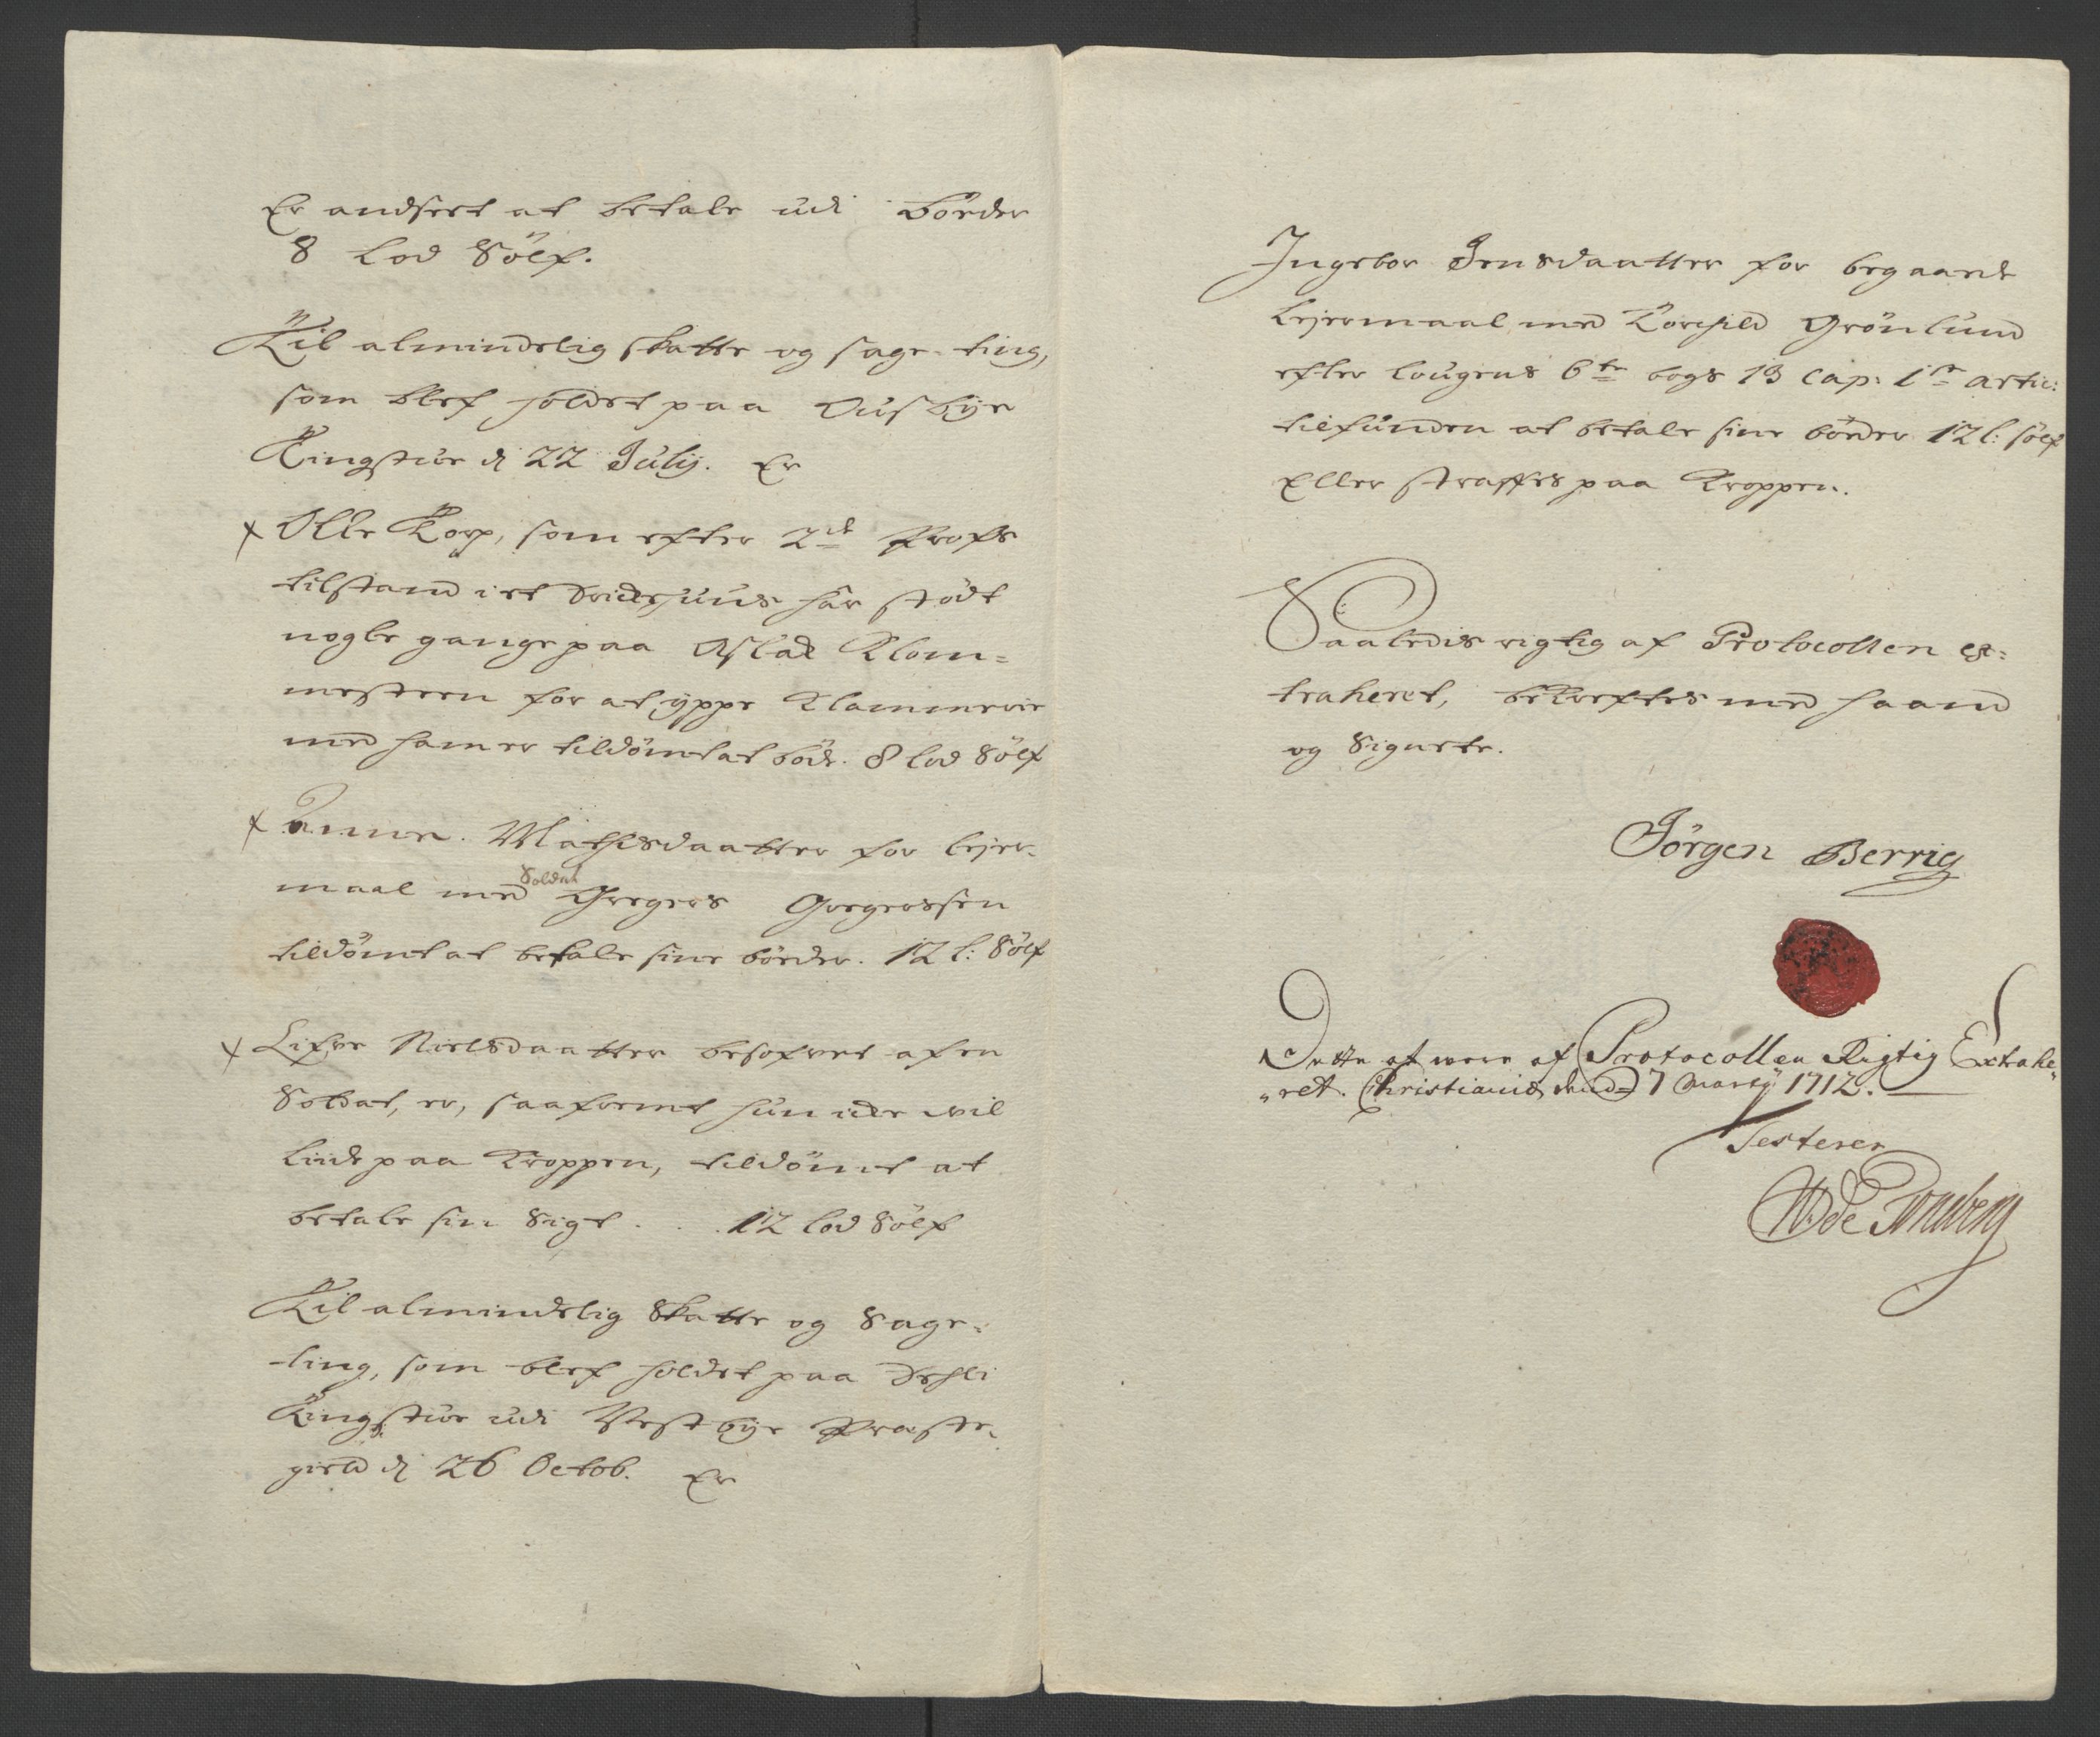 Er andseet at betale udi bøeder
8 Lod Sölf.
Til almindelig skatte og sage-ting,
som blef holdet paa Dusbye
Tingstue d 22 Julij. Er
Olle Torp, som efter 2de Profs
tilstand i et Bridehuus har stödt
nogle gange paa Aslak Klom=
mesteen for at yppe Klammerie
med ham er tildömt at böde. 8 lod Sölf
Anne. Mathisdaatter for lejer-
maal med Soldat Gregers Gregerssen
tildömt at betale sine böeder. 12 l: Sölf
Lisve Nielsdaatter besofvet af en
Soldat, er, saafremt hun icke vil
liide paa Kroppen, tildömt at
betale sin Sigt . . . 12 lod Sölf
Til almindelig Skatte og Sage-
ting, som blef holdet paa Dehli
Tingstue udi Vestbye Præste-
gield d 26 Octob. Er
Ingebor Jensdaatter for begaaede
Lejermaal med Torchild Grönlund
efter Lougens 6te bogs 13 Cap: 1ste Artic:
tilfunden at betale sine böeder 12 l: sölf
Eller straffes paa Kroppen.
Saaledis rigtig af Protocollen ex=
traheret, bekreftes med haand
og Signete.
Jörgen Berrig
Dette at were af Protocollen Rigtig Extrahe„
„ret. Christiania dend 7 Martij 1712.
Testerer